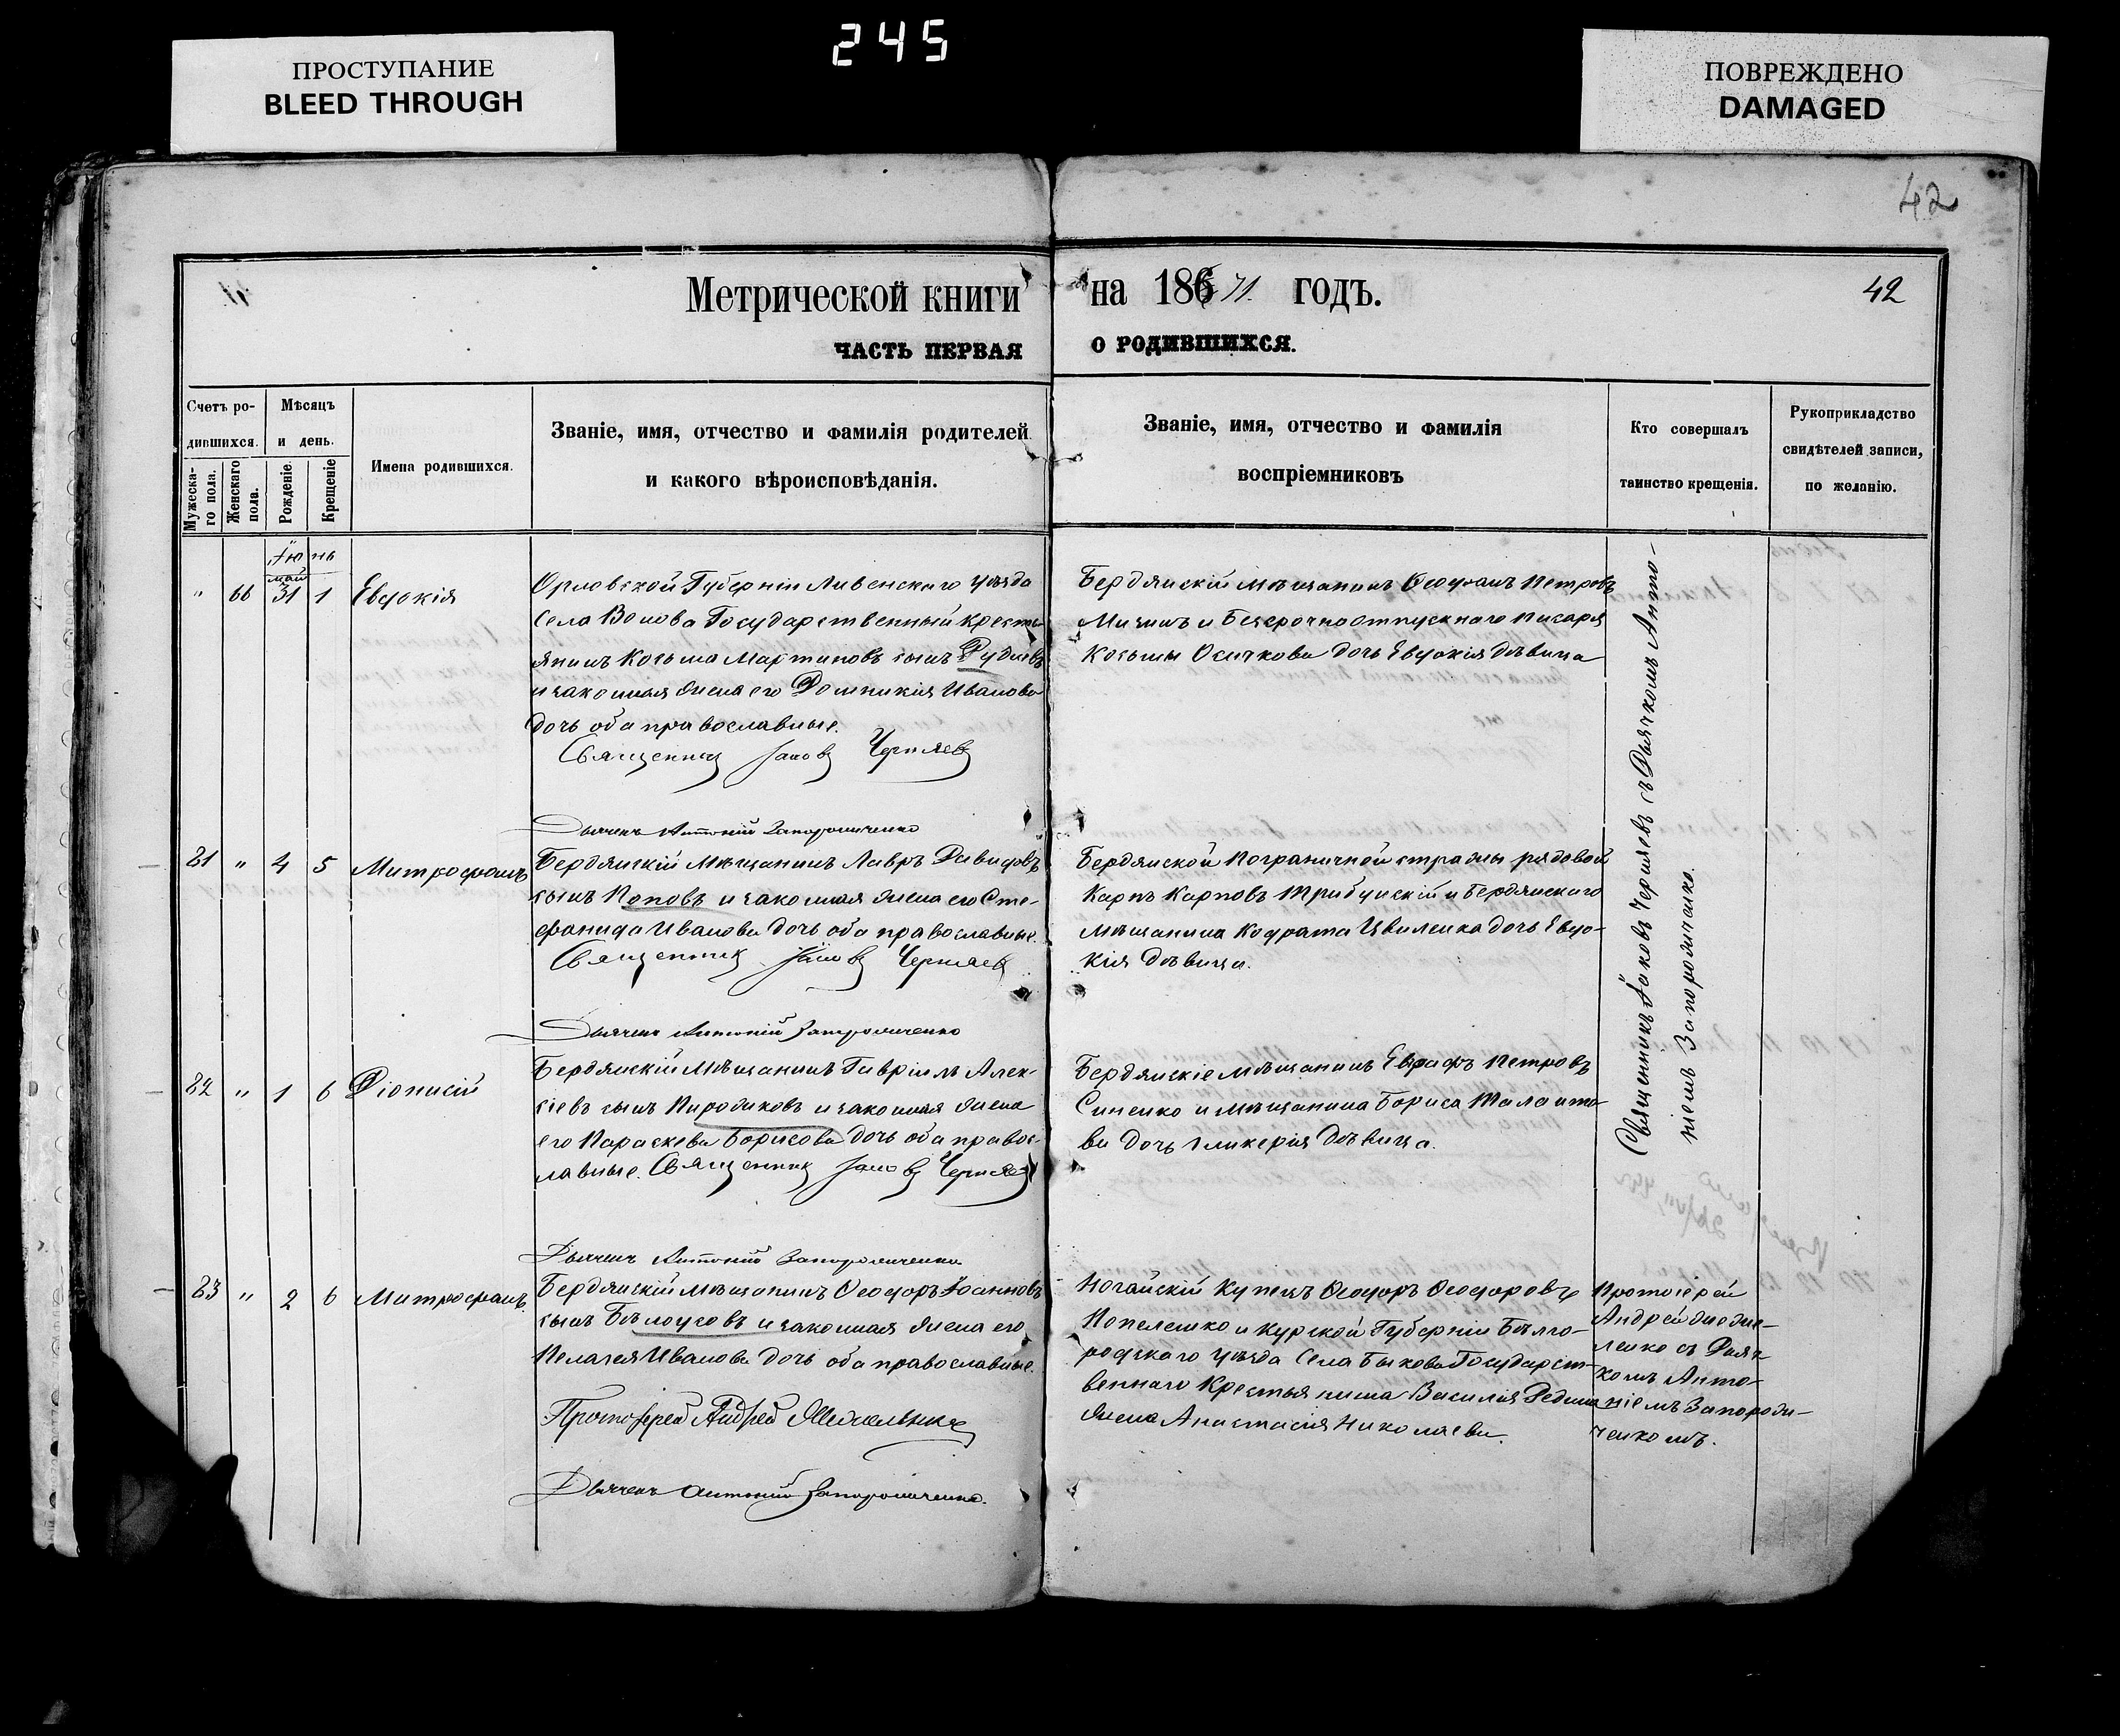 245
ПРОСТУПАНИЕ
BLEED THROUGH
ПОВРЕЖДЕНО
DAMAGED
42
Метрической книги на 186 71. годъ.
42
ЧАСТЬ ПЕРВАЯ О РОДИВШИХСЯ.
Счетъ ро-
дившихся.
Мужеска-
го пола.
Женскаго
пола.
Мѣсяцъ
и день.
Рожденіе.
Крещеніе
Имена родившихся.
Званіе, имя, отчество и фамилія родителей
и какого вѣроисповѣданія.
Званіе, имя, отчество и фамилія
воспріемниковъ
Кто совершалъ
таинство крещенія.
Рукоприкладство
свидѣтелей записи,
по желанію.
Іюнь
май
" 66 31 1 Евдокія
Орловской Губерніи Ливенскаго уѣзда
Села Государственный кресть-
янинъ Козьма Мартиновъ сынъ
и законная жена его Домникія Иванова
дочь оба православные.
Священникъ Іаковъ Черняевъ
Дьячекъ Антоній Запорожченко
Бердянскій мѣщанинъ Ѳеофанъ Петровъ
и Безсрочноотпускнаго писаря
Козьмы Осичкова дочь Евдокія дѣвица
81 " 4 5 Митрофанъ
Бердянскій Мѣщанинъ Лавръ Давидовъ
сынъ Поповъ и законная жена его Сте-
фанида Иванова дочь оба православные.
Священникъ Іаковъ Черняевъ
Дьячекъ Антоній Запорожченко
Бердянской Пограничной стражи рядовой
Карпъ Карповъ Трибунскій и Бердянскаго
мѣщанина Кодрата Цвиленка дочь Евдо-
кія дѣвица.
82 " 1 6 Діонисій
Бердянскій Мѣщанинъ Гавріилъ Алек-
сіевъ сынъ Пирожковъ и законная жена
его Параскева Борисова дочь оба правос-
лавные. Священникъ Іаковъ Черняевъ
Дьячекъ Антоній Запорожченко
Бердянскіе мѣщанинъ Евграфъ Петровъ
Синенко и мѣщанина Бориса
ва дочь Гликерія дѣвица.
Священникъ Іаковъ Черняевъ съ Дьячкомъ Анто-
ніемъ Запорожченко.
83 " 2 6 Митрофанъ.
Бердянскій мѣщанинъ Ѳеодоръ Іоанновъ
сынъ Бѣлоусовъ и законная жена его
Пелагея Иванова дочь оба православные.
Протоіерей Андрей
Дьячекъ Антоній Запорожченко.
Ногайскій Купецъ Ѳеодоръ Ѳеодоровъ
Попелешко и Курской Губерніи Бѣлго-
родскаго уѣзда Села Быкова Государст-
веннаго Крестьянина Василія Редина
жена Анастасія Николаева.
Протоіерей
Андрей
съ Дьяч-
комъ Анто-
ніемъ Запорож-
ченкомъ.